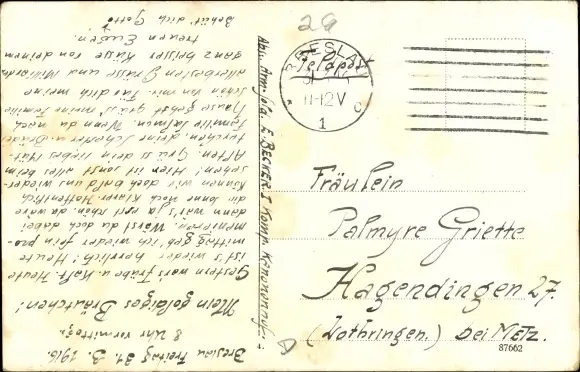 Breslau Freitag 31. 3. 1916.
8 Uhr vormittags.
Mein goldiges Bräutchen!
Gestern war's trübe u. kalt. Heute
ist's wieder herrlich! Heute
mittag geh' ich wieder fein pro-
menieren. Wärst du doch dabei
dann wär's ja erst schön, dann wäre
die Sonne noch klarer. Hoffentlich
können wir uns doch bald wieder-
sehen! Hier ist sonst alles beim
Alten. Grüss dein liebes Müt-
terchen, deine Schwester u.
Familie Wenn du nach
Hause gehst grüss' meine Familie
schön von mir. Für dich meine
allerbesten Grüsse und Milliarde
ganz heisser Küsse von deinem
treuen Eugen.
Behüt' dich Gott!
Abs. Arm. Sold. E. BECKER. I
29
BRESLAU
Feldpost
31
11-12 V
* 1 c
Fräulein
Palmyre Griette
Hagendingen 27.
(Lothringen.) bei Metz.
87662